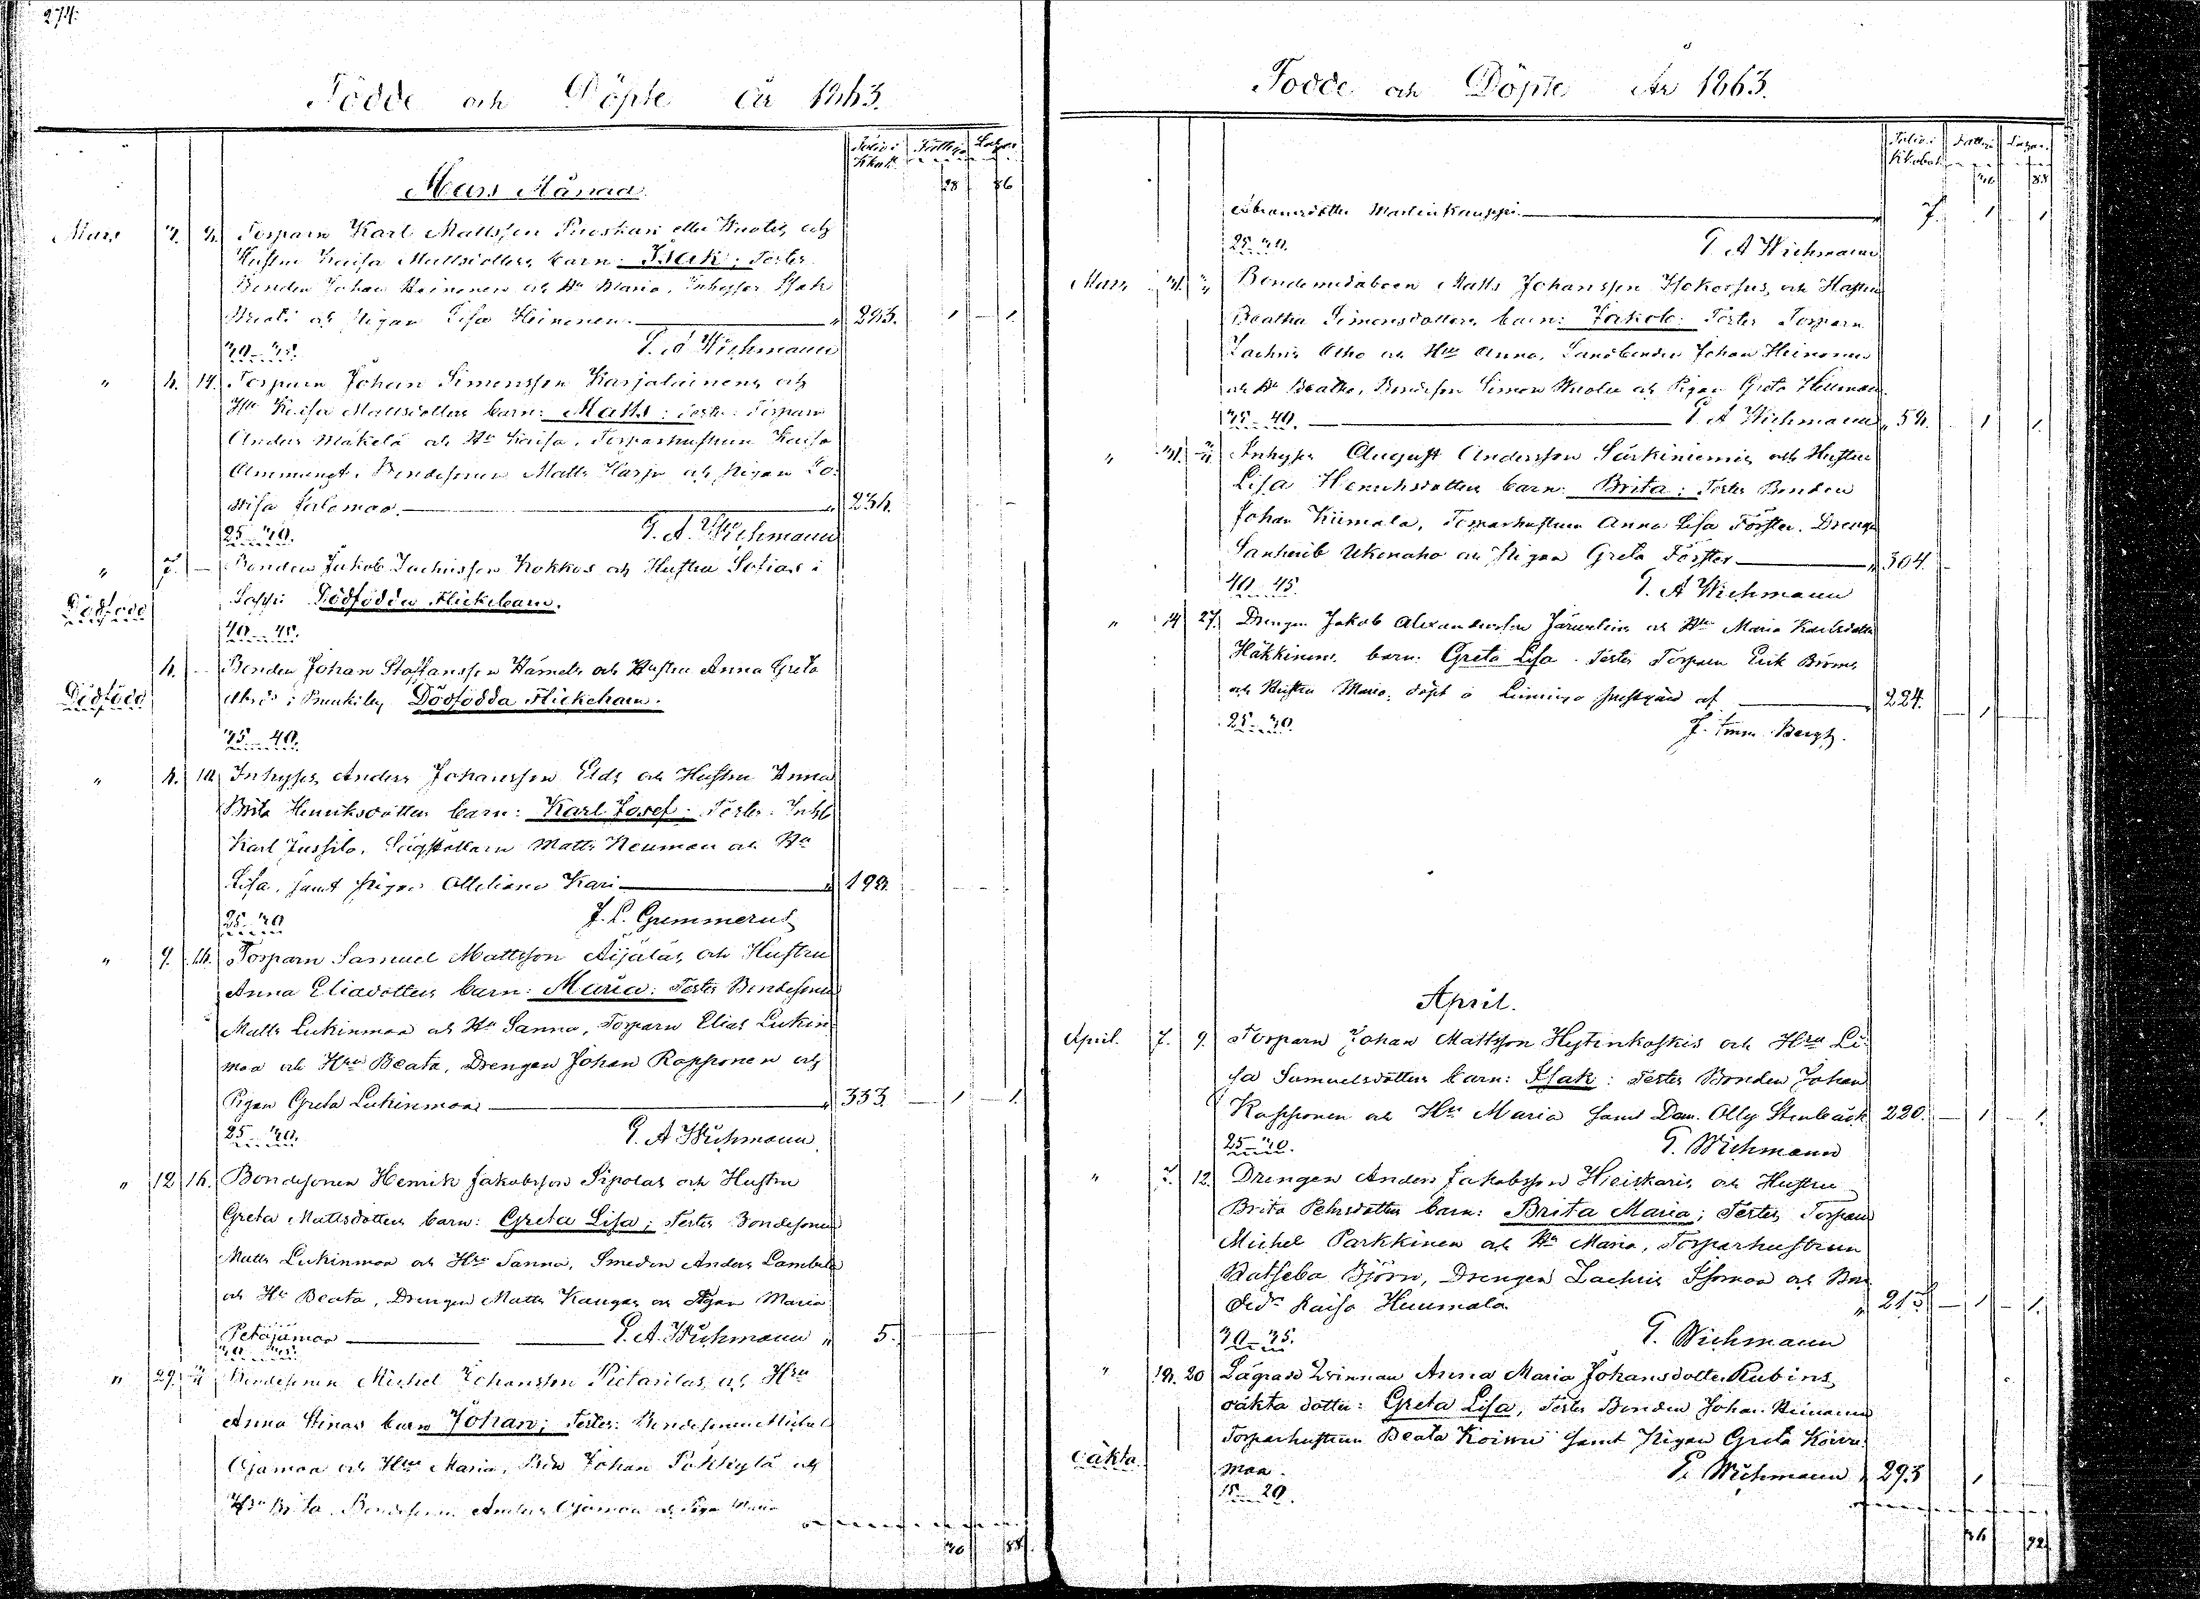 274.
Födde och Döpte år 1863.
Folio i
Kkob.
28 86
Mars Månad.
Mars 3. Torparn Karl Mattsson och
Hustru Kaisa Mattsdotters barn: Isak; Tester
Bonden Johan Heinonen och Hu Maria, Inhyses Isak
och Pigan Lisa Heinonen. " 295. 1 1.
30-35. G. A Wichmann
" 4. 14. Torparn Johan Simonsson Karjalainens och
Hru Kaisa Mattsdotters barn: Matts; Test: Torparn
Anders Mäkelä och Hu Kaisa, Torparhustrun Kaisa
Ammungt, Bondesonen Matts Harju och Pigan Lo-
visa Salomaa. " 234.
25-30. G. A. Wichmann
" 7. — Bonden Jakob Zachrisson Kokkos och Hustru Sofias i
Dödfödd Dödfödda Flickebarn.
40-45.
4. — Bonden Johan Staffansson Hämäls och Hustru Anna Greta
Dödfödd Dödfödda Flickebarn.
35-40.
" 4. 10. Inhyses Anders Johansson Elds och Hustru Anna
Brita Henriksdotters barn: Karl Josef; Tester: Inh
Karl Jussila, Matts Neuman och Hu
Lisa, samt Pigan Kari " 199.
25-30 J. L. Gummerus
" 9. 14. Torparn Samuel Mattsson Äijäläs och Hustru
Anna Eliadotters barn: Maria; Tester Bondesonen
Matts Lukinmaa och Hu Sanna, Torparn Elias Lukin-
maa och Hru Beata, Drengen Johan Rapponen och
Pigan Greta Lukinmaa " 333. 1 1.
25-30. G. A Wichmann
" 12 16. Bondesonen Henrik Jakobsson Sipolas och Hustru
Greta Mattsdotters barn: Greta Lisa; Tester Bondesonen
Matts Lukinmaa och Hru Sanna, Smeden Anders Lambela
och Hu Beata, Drengen Matts Kangas och Pigan Maria
Petäjämaa G. A. Wichmann " 5.
30-35
" 29. Bondesonen Michel Johansson Pietarilas och Hru
Anna Stinas barn Johan; Tester: Bondesonen Michel
Ojamaa och Hru Maria, Johan Pökkylä och
Hru Brita, Bondesonen Anders Ojamaa och Piga Maria
30 88
Födde och Döpte År 1863.
Folio i
Kkobok
30 88
Abramsdotter Martinkauppi. 7. 1 1
25-30. G. A Wichmann
Mars 31. Matts Johansson och Hustru
Beatha Simonsdotters barn: Jakob; Tester Torparn
Zachris Alho och Hru Anna, Landbonden Johan Heinonen
och Hu Beatha, Bondeson Simon och Pigan Greta Hillman.
35-40. G. A Wichmann " 59. 1 1.
" 31. Inhyses August Andersson Särkiniemis och Hustru
Lisa Henriksdotters barn: Brita; Tester Bonden
Johan Kiimala, Torparhustrun Anna Lisa Förster, Dreng
Ukonaho och Pigan Greta Förster " 304.
40-45. G. A Wichmann
" 14 27. Drengen Jakob Alexandersson Järvelins och Hru Maria Karlsdotter
Häkkinens barn: Greta Lisa. Tester Torparn Erik Björns
och Hustru Maria, döpt å Limingo prestgård af 224. 1
25-30. J. Imm. Bergh.
April.
April. 7. 9. Torparn Johan Mattsson Hytinkoskis och Hru Li-
sa Samuelsdotters barn: Isak; Tester Bonden Johan
Rapponen och Hru Maria samt Dem. Olly Stenbäck 220. 1 1.
25-30. G. Wichmann
" 7. 12. Drengen Anders Jakobsson Hieiskaris och Hustru
Brita Pehrsdotters barn: Brita Maria; Tester Torparn
Michel Parkkinen och Hu Maria, Torparhustrun
Batseba Björn, Drengen Zachris Isomaa och
Kaisa Huumala. " 215 1 1.
30-35. G. Wichmann
" 19. 20 Lägrade Qvinnan Anna Maria Johansdotter Rubins
oäkta dotter: Greta Lisa; Tester Bonden Johan Heinonen
Torparhustrun Beata Koivu samt Pigan Greta Koivu-
oäkta maa. G. Wichmann " 293 1
15-20.
34 92